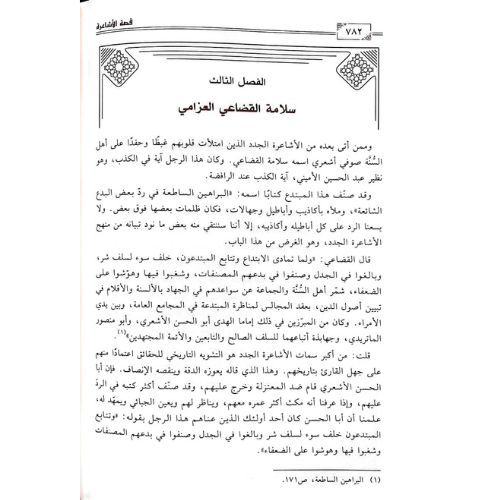 قصة الأشاعرة
٧٨٢
الفصل الثالث
سلامة القضاعي العزامي
وممن أتى بعده من الأشاعرة الجدد الذين امتلأت قلوبهم غيظًا وحقدًا على أهل
السُّنَّة صوفي أشعري اسمه سلامة القضاعي. وكان هذا الرجل آية في الكذب، وهو
نظير عبد الحسين الأميني، آية الكذب عند الرافضة.
وقد صنّف هذا المبتدع كتابًا اسمه: «البراهين الساطعة في ردّ بعض البدع
الشائعة»، وملأه بأكاذيب وأباطيل وجهالات، فكان ظلمات بعضها فوق بعض. ولا
يسعنا الرد على كل أباطيله وأكاذيبه، إلا أننا سننتقي منه بعض ما نود تبيانه من منهج
الأشاعرة الجدد، وهو الغرض من هذا الباب.
قال القضاعي: «ولما تمادى الابتداع وتتابع المبتدعون، خلف سوء لسلف شر،
وبالغوا في الجدل وصنفوا في بدعهم المصنفات، وشغبوا فيها وهوّشوا على
الضعفاء، شمّر أهل السُّنَّة والجماعة عن سواعدهم في الجهاد بالألسنة والأقلام في
تبيين أصول الدين، بعقد المجالس لمناظرة المبتدعة في المجامع العامة، وبين يدي
الأمراء. وكان من المبرّزين في ذلك إماما الهدى أبو الحسن الأشعري، وأبو منصور
الماتريدي، وجهابذة أتباعهما للسلف الصالح والتابعين والأئمة المجتهدين»(١).
قلت: من أكبر سمات الأشاعرة الجدد هو التشويه التاريخي للحقائق اعتمادًا منهم
على جهل القارئ بتاريخهم. وهذا الذي قاله يعوزه الدقة وينقصه الإنصاف. فإن أبا
الحسن الأشعري قام ضد المعتزلة وخرج عليهم، وقد صنّف أكثر كتبه في الردّ
عليهم، وإذا عرفنا أنه مكث أكثر عمره معهم، ويناظر لهم ويعين الجبائي ويمهّد له،
علمنا أن أبا الحسن كان أحد أولئك الذين عناهم هذا الرجل بقوله: «وتتابع
المبتدعون خلف سوء لسلف شر وبالغوا في الجدل وصنفوا في بدعهم المصنفات
وشغبوا فيها وهوشوا على الضعفاء».
(١) البراهين الساطعة، ص١٧١.